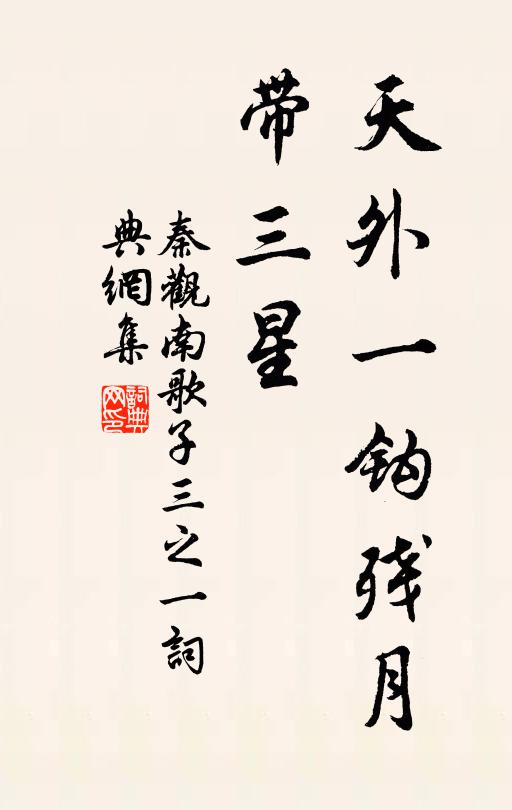 天外一钩残月
带三星
秦觀南歌子三之一詞
典網集
詞典
网印